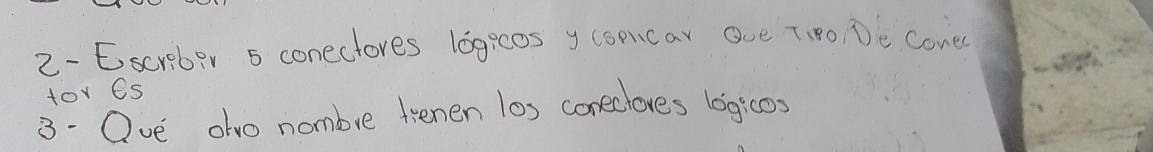 2- Escribir 5 conectores lógicos y esplicar Que Tipo De conec
tor es
3- Qué otro nombre tienen los conectores lógicos